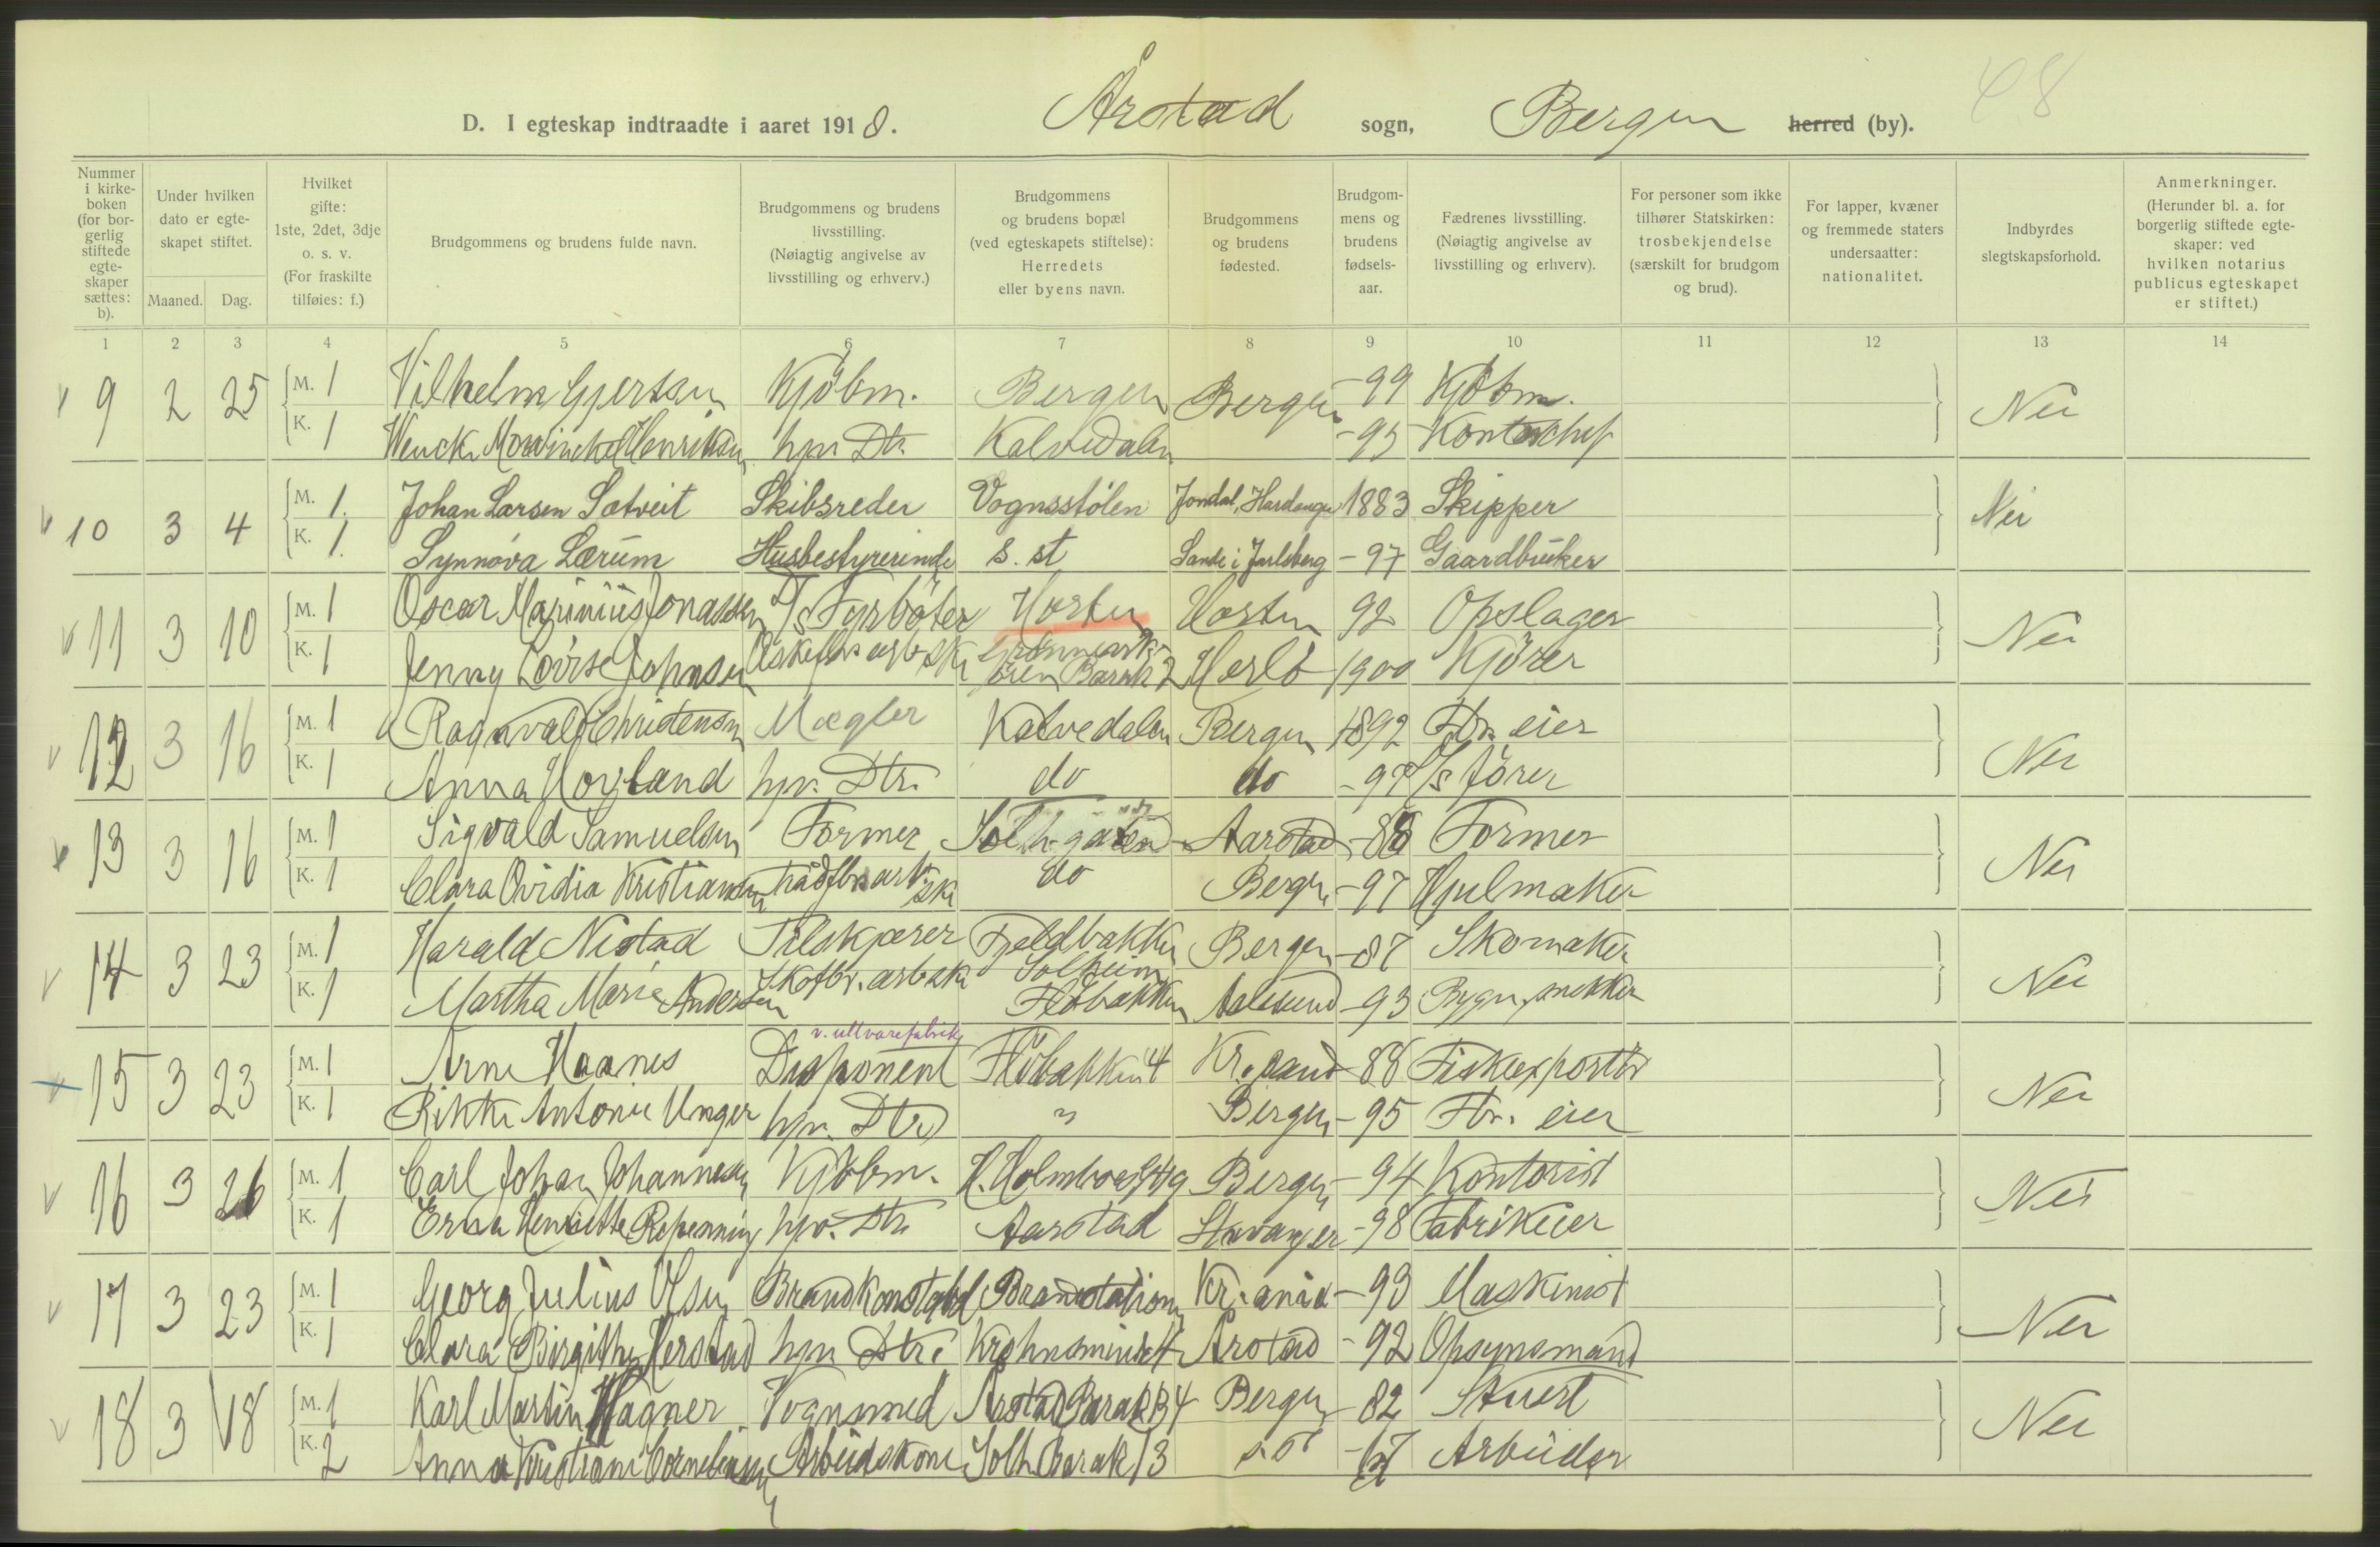 D. I egteskap indtraadte i aaret 1918. Årstad sogn, Bergen herred (by). 48
Nummer i kirkeboken (for borgerlig stiftede egteskaper sættes: b).
Under hvilken dato er egteskapet stiftet.
Maaned. Dag.
Hvilket gifte: 1ste, 2det, 3dje o. s. v. (For fraskilte tilføies: f.)
Brudgommens og brudens fulde navn.
Brudgommens og brudens livsstilling. (Nøiagtig angivelse av livsstilling og erhverv.)
Brudgommens og brudens bopæl (ved egteskapets stiftelse): Herredets eller byens navn.
Brudgommens og brudens fødested.
Brudgommens og brudens fødselsaar.
Fædrenes livsstilling. (Nøiagtig angivelse av livsstilling og erhverv).
For personer som ikke tilhører Statskirken: trosbekjendelse (særskilt for brudgom og brud).
For lapper, kvæner og fremmede staters undersaatter: nationalitet.
Indbyrdes slegtskapsforhold.
Anmerkninger. (Herunder bl. a. for borgerlig stiftede egteskaper: ved hvilken notarius publicus egteskapet er stiftet.)
1 2 3 4 5 6 7 8 9 10 11 12 13 14
9 2 25 M. 1 Vilhelm Gjertsen Kjøbm. Bergen Bergen -99 Kjøbm. Nei
K. 1 Mowinckel Henriksen hjv. Dtr. Kalvedalen -95 Kontorchef
10 3 4 M. 1. Johan Larsen Sætveit Skibsreder Vognsstölen Jondal, Hardanger 1883 Skipper Nei
K. 1. Synnøva Lærum Husbestyrerinde s. st Sande i Jarlsberg -97 Gaardbruker
11 3 10 M. 1 Oscar Marinius Jonassen D/s Fyrbøter Horten Horten 92 Opslager Nei
K. 1 Jenny Lovise Johnsen Barak 2 Herlø 1900 Kjører
12 3 16 M. 1 Ragnvald Christensen Mægler Kalvedalen Bergen 1892 Fbr. eier Nei
K. 1 Anna Hovland hjv. Dtr. do do -97 D/s fører
13 3 16 M. 1 Sigvald Samuelsen Former Solh-gaten Aarstad -88 Former Nei
K. 1 Clara Ovidia Kristiansen Trådfbr.arb.ske do Bergen -97 Hjulmaker
14 3 23 M. 1 Harald Nistad Filskjærer Fjeldbakken Solheim Bergen -87 Skomaker Nei
K. 1 Martha Marie Andersen Skofbr.arb.ske Flöbakken Aalesund -93 Bygn.snekker
v. ultvarefabrik
15 3 23 M. 1 Arne Haanes Disponent Flöbakken 4 Kr.sand -88 Fiskeexportør Nei
K. 1 Rikke Antonie Unger hjv. Dtr. " Bergen -95 Fbr. eier
16 3 26 M. 1 Carl Johan Johannesen Kjøbm. Bergen -94 Kontorist Nei
K. 1 Erna Henriette Repenning hjv. Dtr. Aarstad Stavanger -98 Fabrikeier
17 3 23 M. 1 Georg Julius Olsen Brandkonstabel Brandstationen Kr.ania -93 Maskinist Nei
K. 1 Clara Birgithe Herstad hjv. Dtr. Krohnsminde Årstad -92 Opsynsmand
18 3 18 M. 1 Karl Martin Wagner Vognsmed Årstad Barak B4 Bergen -82 Stuert Nei
K. 2 Anna Kristiane Corneliussen Arbeidskone Solh. Barak 13 s. st Arbeider